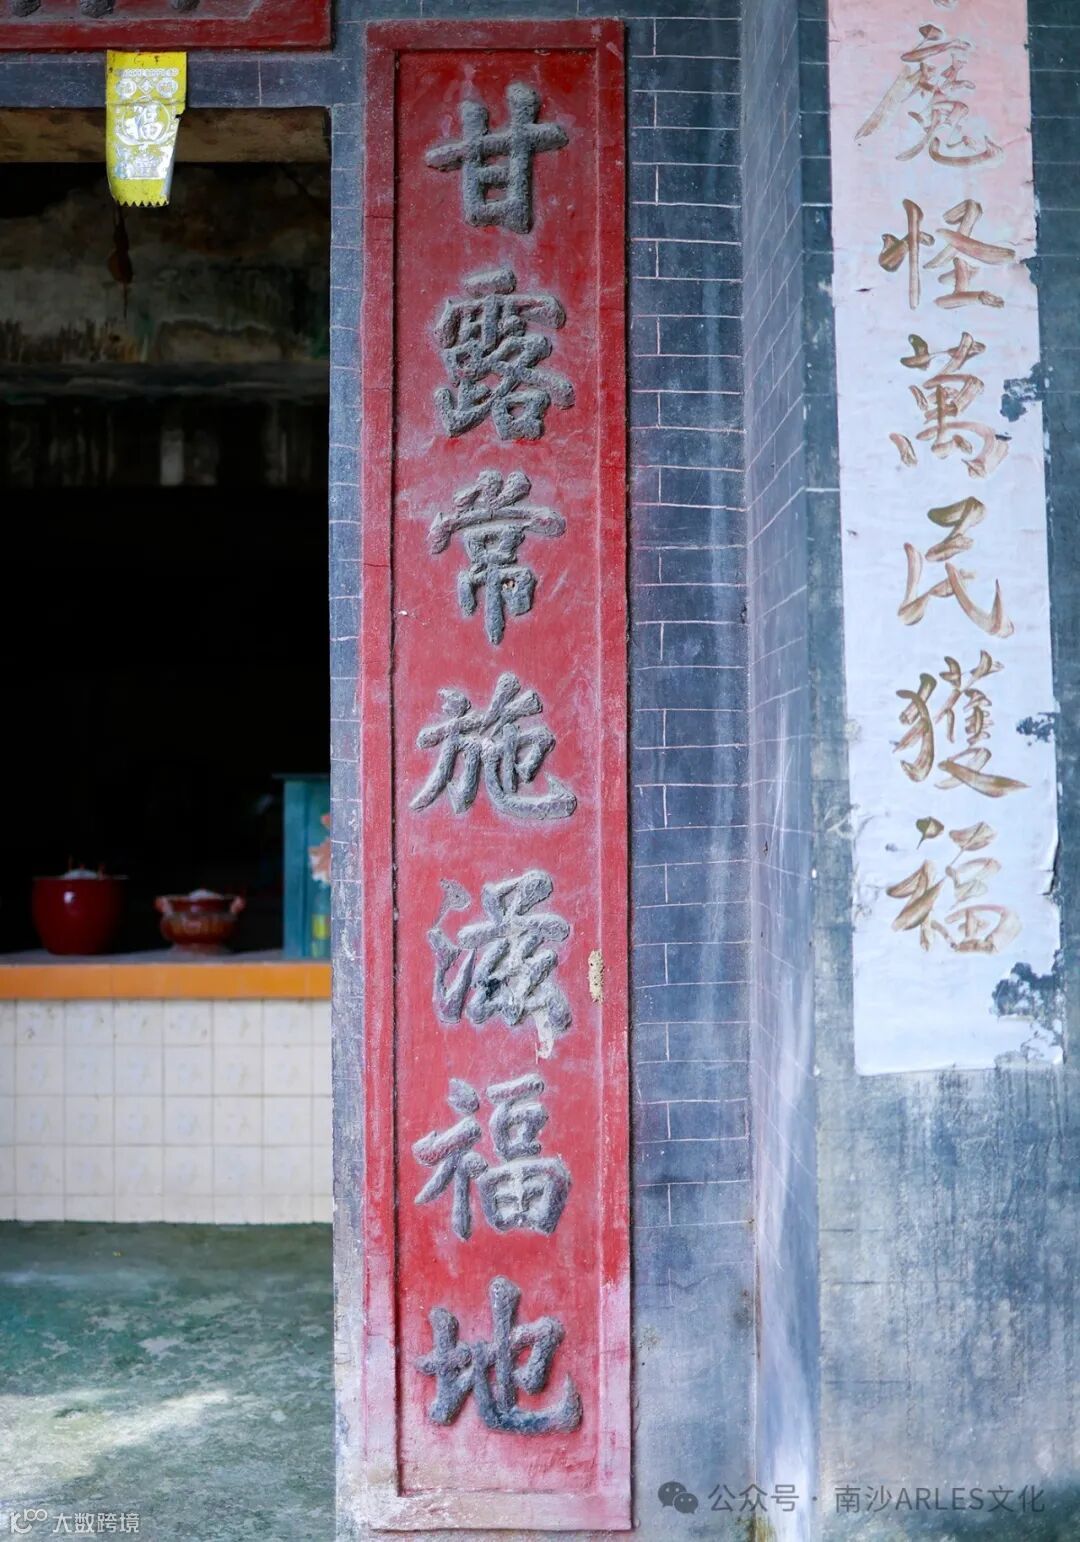 甘露常施滋福地
魔怪萬民獲福
福
公众号 · 南沙ARLES文化
大数跨境